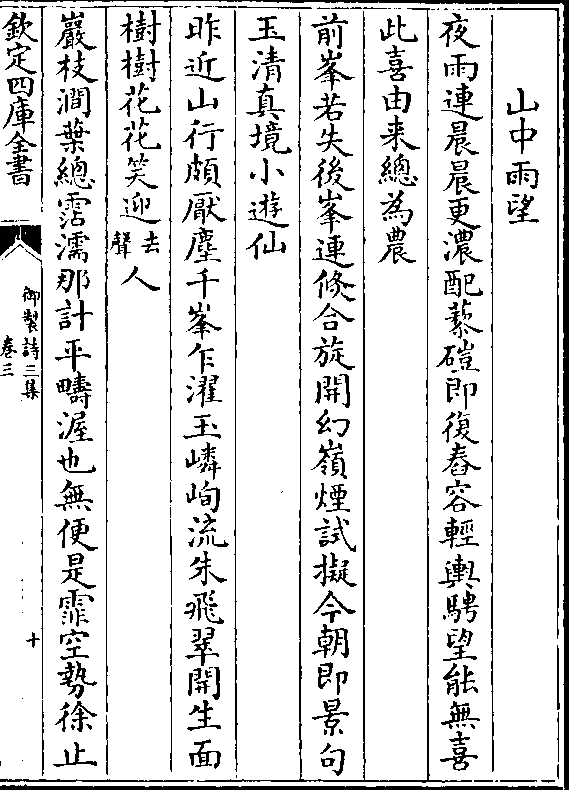 山中雨望
夜雨連晨晨更濃配藜磑即復舂容輕輿騁望能無喜
此喜由来總為農
前峯若失後峯連倏合旋開幻嶺煙試擬今朝即景句
玉清真境小遊仙
昨近山行頗厭塵千峯乍濯玉嶙峋流朱飛翠開生面
樹樹花花笑迎去聲人
巖枝澗葉總霑濡那計平疇渥也無便是霏空勢徐止
欽定四庫全書
御製詩三集
卷三
十